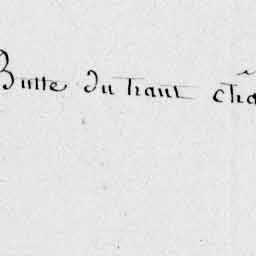 Butte du haut chá